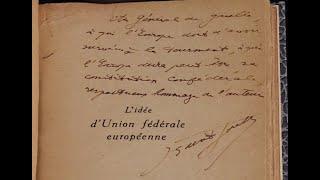 Au Général de Gaulle,
à qui l'Europe doit d'avoir
survécu la tourment, à qui
l'Europe devra peut-être sa
constitution confédérale,
respectueux hommage de l'auteur
L'idée
d'Union fédérale
européenne